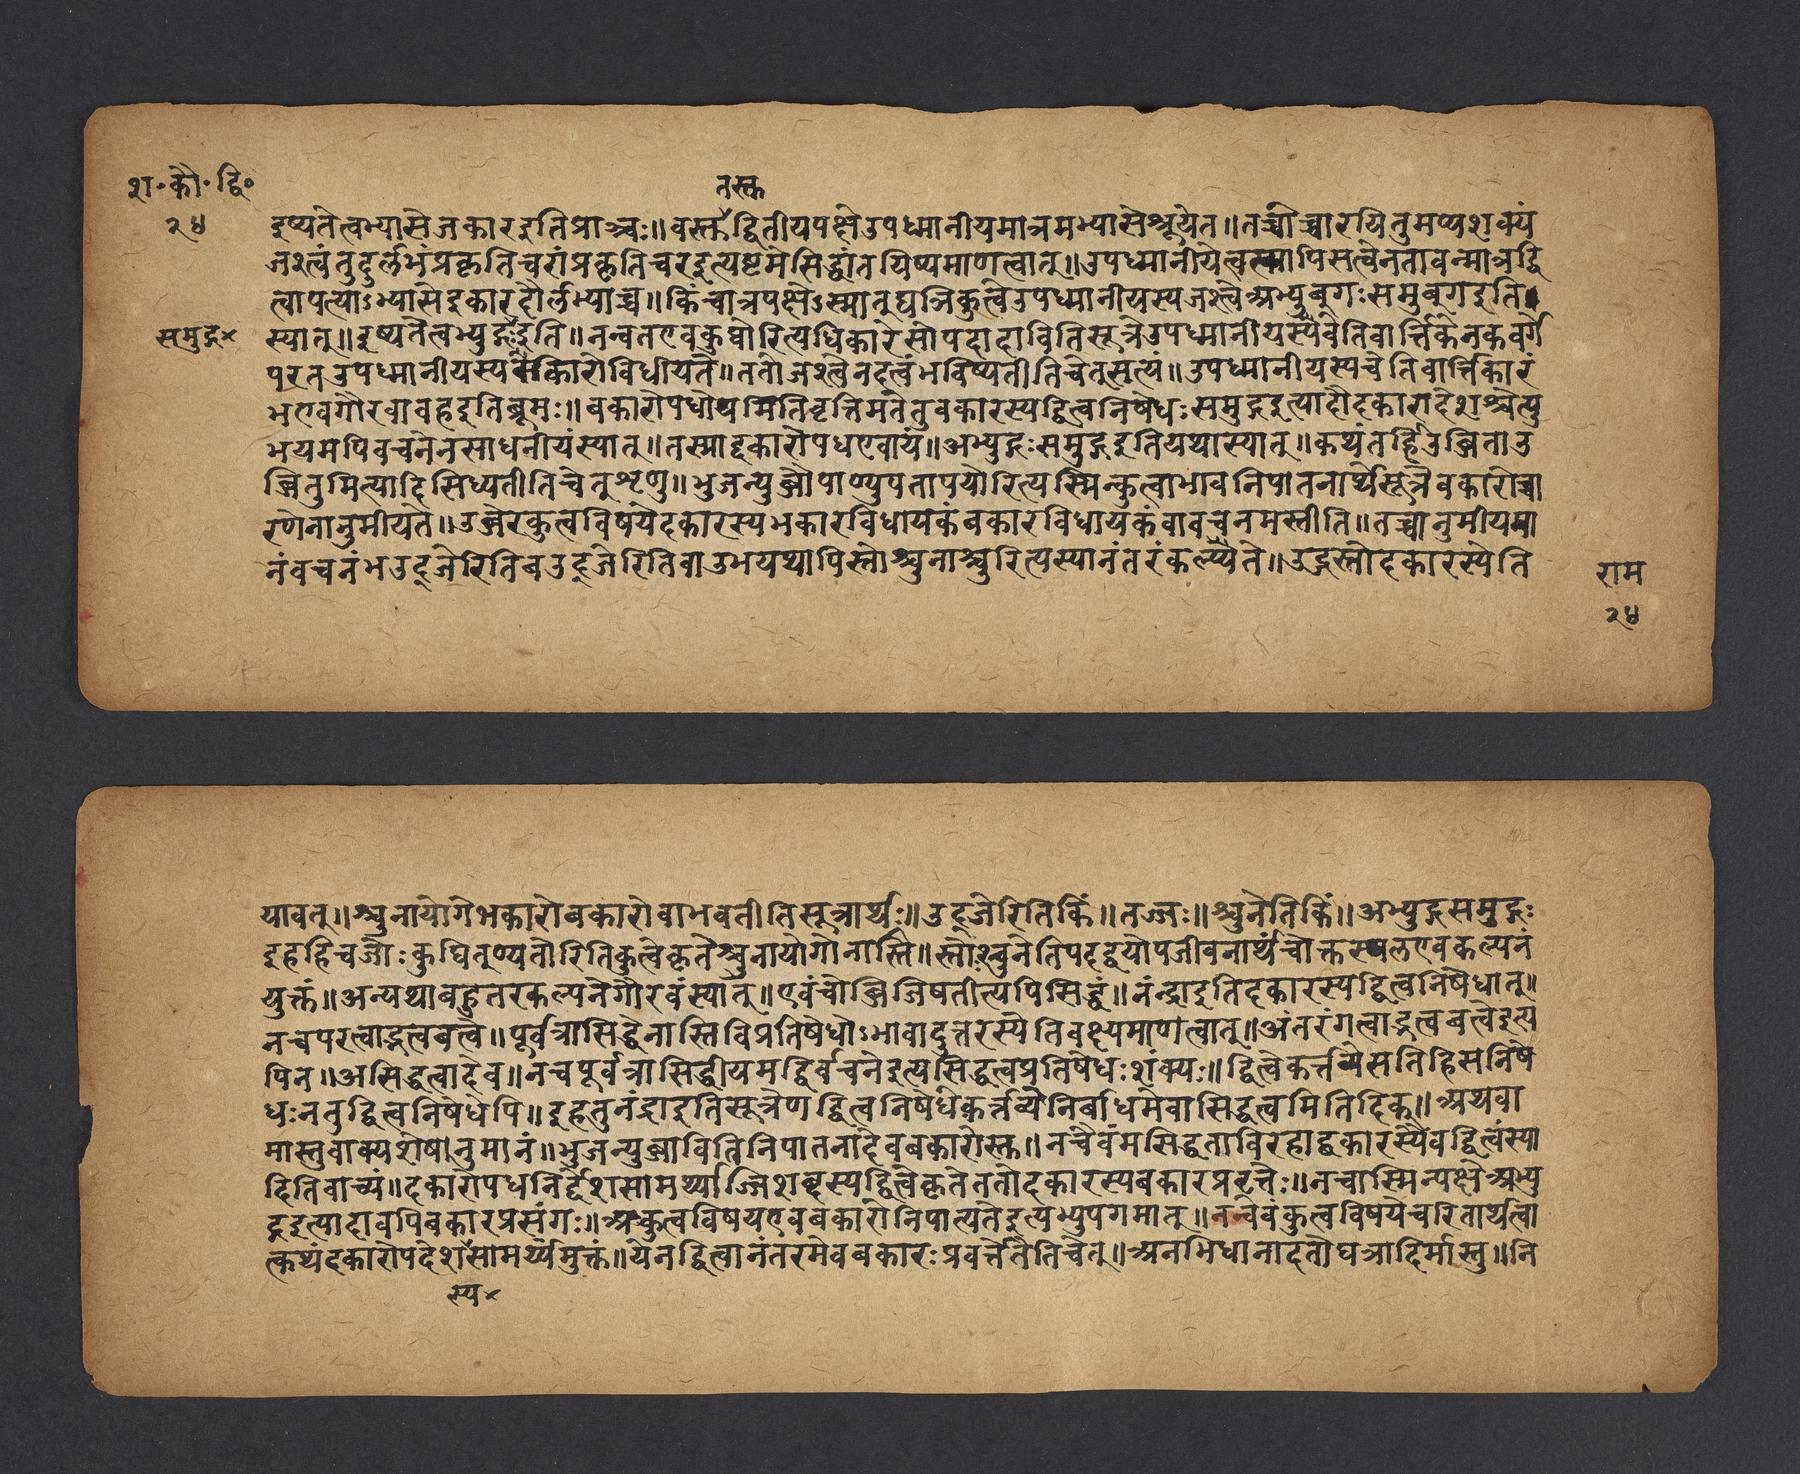 श॰कौ॰द्वि॰
२४
तस्क
इष्यतेत्वभ्यासेजकारइतिप्राञ्चः॥वस्तुद्वितीयपक्षेउपध्मानीयमात्रमभ्यासेश्रूयेत॥तच्चोच्चारयितुमप्यशक्यं
जश्त्वंतुदुर्लभंप्रकृतिचरांप्रकृतिचरइत्यष्टमेसिद्धांतयिष्यमाणत्वात्॥उपध्मानीयेत्वस्यापिसत्वेनतावन्मात्रद्वि
त्वापत्याऽभ्यासेइकारदौर्लभ्याच्च॥किंचात्रपक्षेऽस्मात्घञिकुत्वेउपध्मानीयस्यजश्त्वेअभ्युब्गःसमुब्गइति
समुद्ग×
स्यात्॥इष्यतेत्वभ्युद्गःइति॥नन्वतएवकुप्वोरित्यधिकारेसोपदादावितिसूत्रेउपध्मानीयस्यैवेतिवार्त्तिकेनकवर्गे
परतउपध्मानीयस्यसकारोविधीयते॥ततोजश्त्वेनदत्वंभविष्यतीतिचेत्सत्यं॥उपध्मानीयस्यचेतिवार्त्तिकारं
भएवगौरवावहइतिब्रूमः॥बकारोपधोयमितिवृत्तिमतेतुबकारस्यद्वित्वनिषेधःसमुद्गइत्यादौदकारादेशश्चेत्यु
भयमपिवचनेनसाधनीयंस्यात्॥तस्माद्दकारोपधएवायं॥अभ्युद्गःसमुद्गइतियथास्यात्॥कथंतर्हिउब्जिताउ
ब्जितुमित्यादिसिध्यतीतिचेत्शृणु॥भुजन्युब्जौपाण्युपतापयोरित्यस्मिन्कुत्वाभावनिपातनार्थेसूत्रेबकारोच्चा
रणेनानुमीयते॥उब्जेरकुत्वविषयेदकारस्यभकारविधायकंबकारविधायकंवावचनमस्तीति॥तच्चानुमीयमा
नंवचनंभउद्जेरितिबउद्जेरितिवाउभयथापिस्तोश्चुनाश्चुरित्यस्यानंतरंकल्प्यते॥उद्जस्तोदकारस्येति
राम
२४
यावत्॥श्चुनायोगेभकारोबकारोवाभवतीतिसूत्रार्थः॥उद्जेरितिकिं॥तज्जः॥श्चुनेतिकिं॥अभ्युद्गसमुद्गः
इहहिचजोःकुघितण्यतोरितिकुत्वेकृतेश्चुनायोगोनास्ति॥स्तोःश्चुनेतिपदद्वयोपजीवनार्थंचोक्तस्थलएवकल्पनं
युक्तं॥अन्यथाबहुतरकल्पनेगौरवंस्यात्॥एवंचोब्जिजिषतीत्यपिसिद्धं॥नंन्द्राइतिदकारस्यद्वित्वनिषेधात्॥
नचपरत्वाद्भत्वबत्वे॥पूर्वत्रासिद्धेनास्तिविप्रतिषेधोऽभावादुत्तरस्येतिवक्ष्यमाणत्वात्॥अंतरंगत्वाद्भत्वबत्वेइत्य
पिन॥असिद्धत्वादेव॥नचपूर्वत्रासिद्धीयमद्विर्वचनेइत्यसिद्धत्वप्रतिषेधःशंक्यः॥द्वित्वेकर्त्तव्येसतिहिसनिषे
धःनतुद्वित्वनिषेधेपि॥इहतुनंद्राइतिसूत्रेणद्वित्वनिषेधेकर्त्तव्येनिर्बाधमेवासिद्धत्वमितिदिक्॥अथवा
मास्तुवाक्यशेषानुमानं॥भुजन्युब्जावितिनिपातनादेवबकारोस्तु॥नचैवंमसिद्धताविरहाद्बकारस्यैवद्वित्वंस्या
दितिवाच्यं॥दकारोपधनिर्द्देशसामर्थ्याज्जिशब्दस्यद्वित्वेकृतेततोदकारस्यबकारप्रवृत्तेः॥नचास्मिन्पक्षेअभ्यु
द्गइत्यादावपिबकारप्रसंगः॥अकुत्वविषयएवबकारोनिपात्यतेइत्यभ्युपगमात्॥नन्वेवंकुत्वविषयेचरितार्थत्वा
त्कथंदकारोपदेशसामर्थ्यमुक्तं॥येनद्वित्वानंतरमेवबकारःप्रवर्त्तेतेतिचेत्॥अनभिधानादतोघञादिर्मास्तु॥नि
स्य×